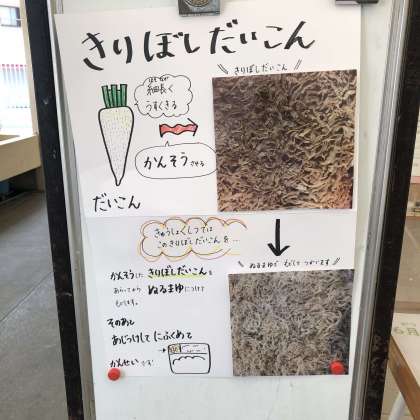 きりぼしだいこん
ほそなが
細長く
うすくきる
かんそうさせる
だいこん
きりぼしだいこん
きゅうしょくしつでは
このきりぼしだいこんを…
かんそうした きりぼしだいこんを
あらってから ぬるまゆにつけて
もどします。
そのあと
あじつけして にふくめて
かんせいです!
ぬるまゆで もどして つかいます